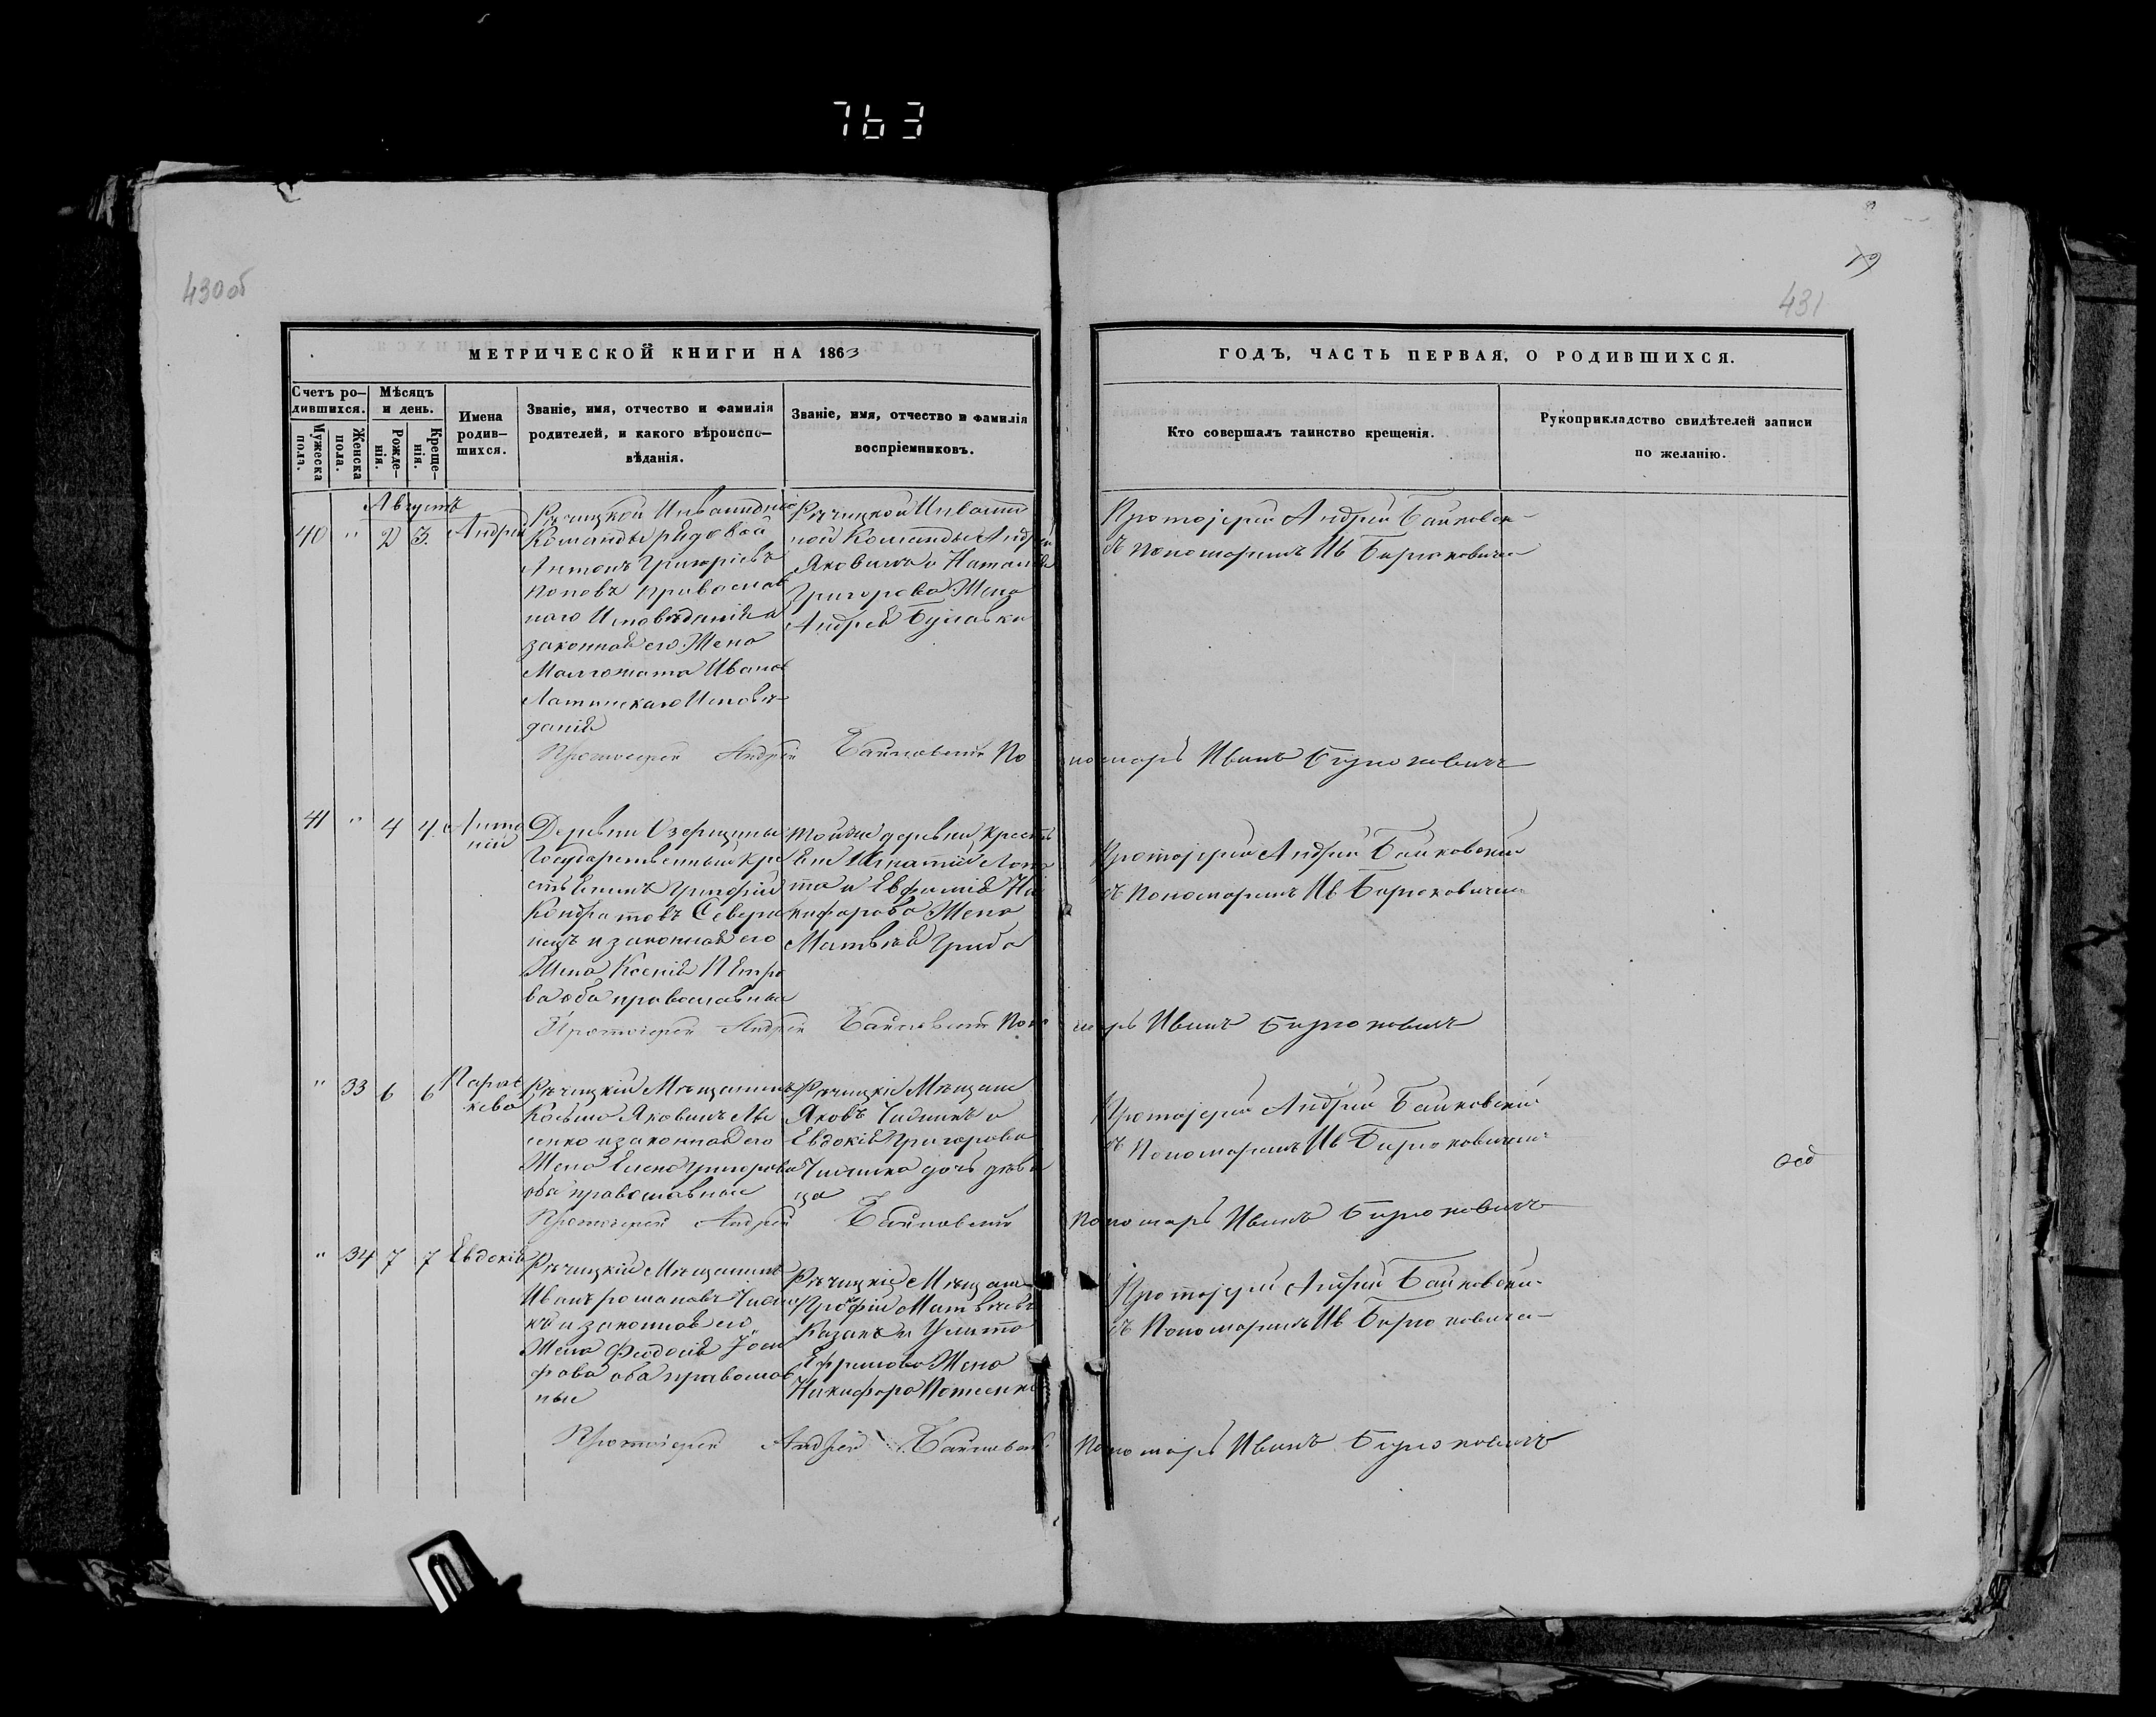 763
430 об
79
431
МЕТРИЧЕСКОЙ КНИГИ НА 1863
ГОДЪ, ЧАСТЬ ПЕРВАЯ, О РОДИВШИХСЯ.
Счетъ ро-
дившихся.
Мужеска
пола.
Женска
пола.
Мѣсяцъ
и день.
Рожде-
нія.
Креще-
нія.
Имена
родив-
шихся.
Званіе, имя, отчество и фамилія
родителей, и какого вѣроиспо-
вѣданія.
Званіе, имя, отчество и фамилія
воспріемниковъ.
Кто совершалъ таинство крещенія.
Рукоприкладство свидѣтелей записи
по желанію.
Августъ
40 " 2 3. Андрій
Рѣчицкой Инвалидной
Команды рядовой
Антонъ Григоріевъ
Поповъ православ
наго Исповѣданія а
законная его Жена
Малгожата Иванова
Латинскаго Исповѣ-
данія
Рѣчицкой Инвалид
ной Команды Андрей
Яковлевъ и Наталія
Григорова Жена
Андрея
Протоіерей Андрей Байковскій
съ пономаремъ Ив Бирюковичем
Протоіерей Андрей Байковскій Пономарь Иванъ Бирюковичъ
41 " 4 4. Анто
ній
Деревни Озерщины
Государственный Кре
стьянинъ Григорій
Кондратовъ Севери
нецъ и законная его
Жена Ксенія Петро
ва оба православные
той же деревни крестья
Игнатій
и Евфимія Ни
кифорова Жена
Матвѣя Гриба
Протоіерей Андрей Байковскій
съ Пономаремъ Ив Бирюковичем
Протоіерей Андрей Байковскій Пономарь Иванъ Бирюковичъ
" 33 6 6 Парас
кева
Рѣчицкій Мѣщанинъ
Косьма Яковлевъ
и законная его
Жена Елена Григорова
оба православные
Рѣчицкіе Мѣщане
Яковъ и
Евдокія Григорова
дочь дѣви
ца
Протоіерей Андрей Байковскій
съ Пономаремъ Ив Бирюковичем
Протоіерей Андрей Байковскій Пономарь Иванъ Бирюковичъ
" 34 7 7 Евдокія
Рѣчицкій Мѣщанинъ
Иванъ Романовъ
и законная его
Жена Феодосія Іоси
фова оба православ
ные
Рѣчицкіе Мѣщане
Матвѣевъ
Казакъ и Улита
Ефремова Жена
Никифора
Протоіерей Андрей Байковскій
съ Пономаремъ Ив Бирюковичем
Протоіерей Андрей Байковскій Пономарь Иванъ Бирюковичъ